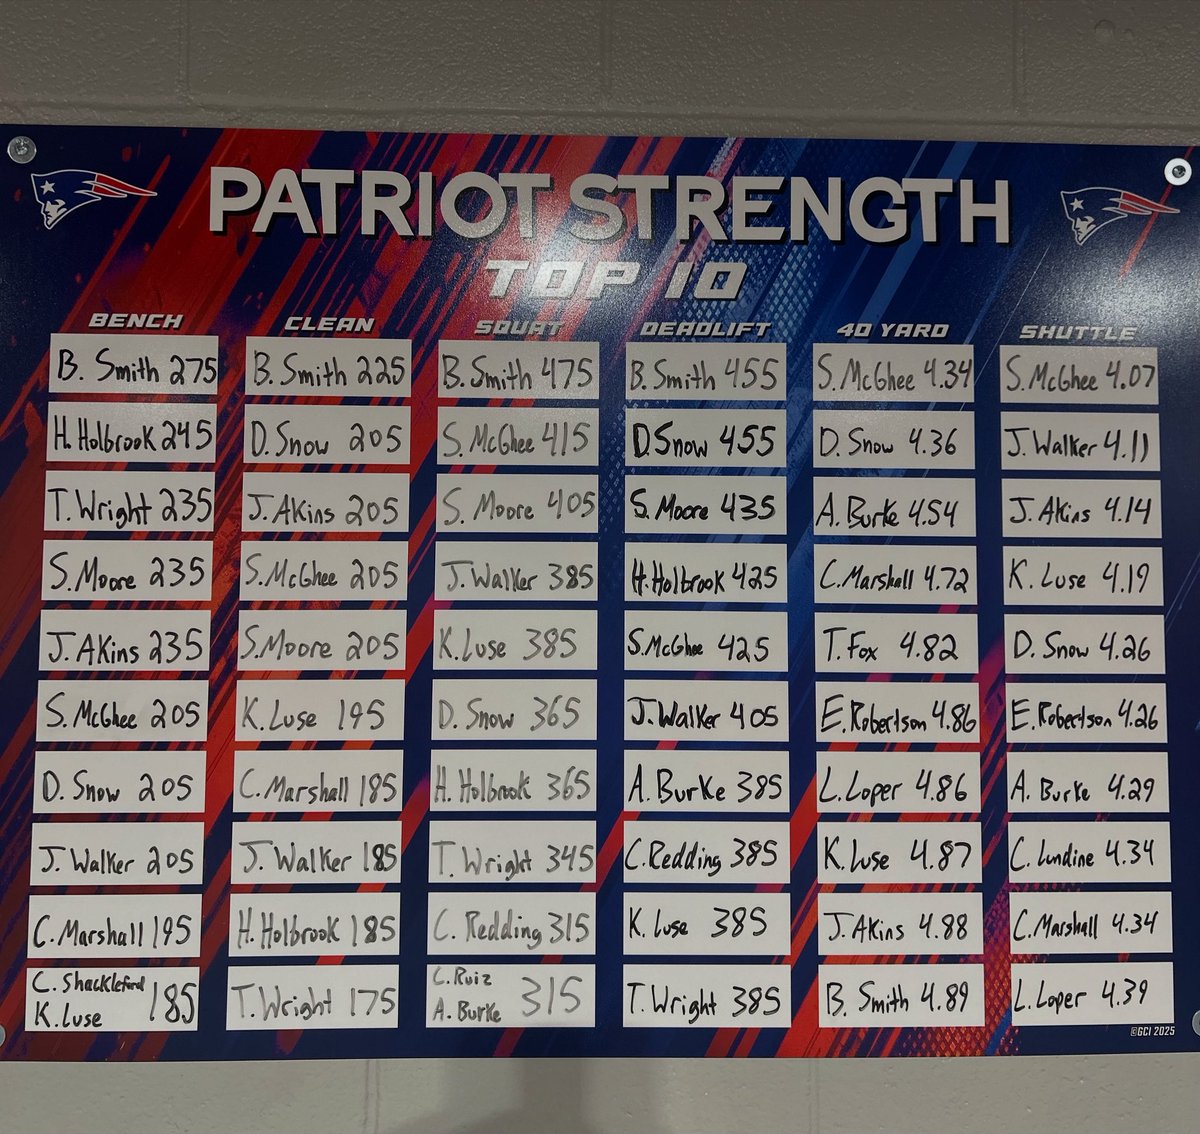 PATRIOT STRENGTH
TOP 10
BENCH CLEAN SQUAT DEADLIFT 40 YARD SHUTTLE
B. Smith 275 B. Smith 225 B. Smith 475 B. Smith 455 S. McGhee 4.34 S. McGhee 4.07
H. Holbrook 245 D. Snow 205 S. McGhee 415 D. Snow 455 D. Snow 4.36 J. Walker 4.11
T. Wright 235 J. Akins 205 S. Moore 405 S. Moore 435 A. Burke 4.54 J. Akins 4.14
S. Moore 235 S. McGhee 205 J. Walker 385 H. Holbrook 425 C. Marshall 4.72 K. Luse 4.19
J. Akins 235 S. Moore 205 K. Luse 385 S. McGhee 425 T. Fox 4.82 D. Snow 4.26
S. McGhee 205 K. Luse 195 D. Snow 365 J. Walker 405 E. Robertson 4.86 E. Robertson 4.26
D. Snow 205 C. Marshall 185 H. Holbrook 365 A. Burke 385 L. Loper 4.86 A. Burke 4.29
J. Walker 205 J. Walker 185 T. Wright 345 C. Redding 385 K. Luse 4.87 C. Lundine 4.34
C. Marshall 195 H. Holbrook 185 C. Redding 315 K. Luse 385 J. Akins 4.88 C. Marshall 4.34
C. Shackleford K. Luse 185 T. Wright 175 C. Ruiz A. Burke 315 T. Wright 385 B. Smith 4.89 L. Loper 4.39
©GCI 2025